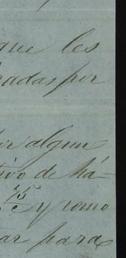 que les
adas por
algun
tivo de há-
15 y como
ar para